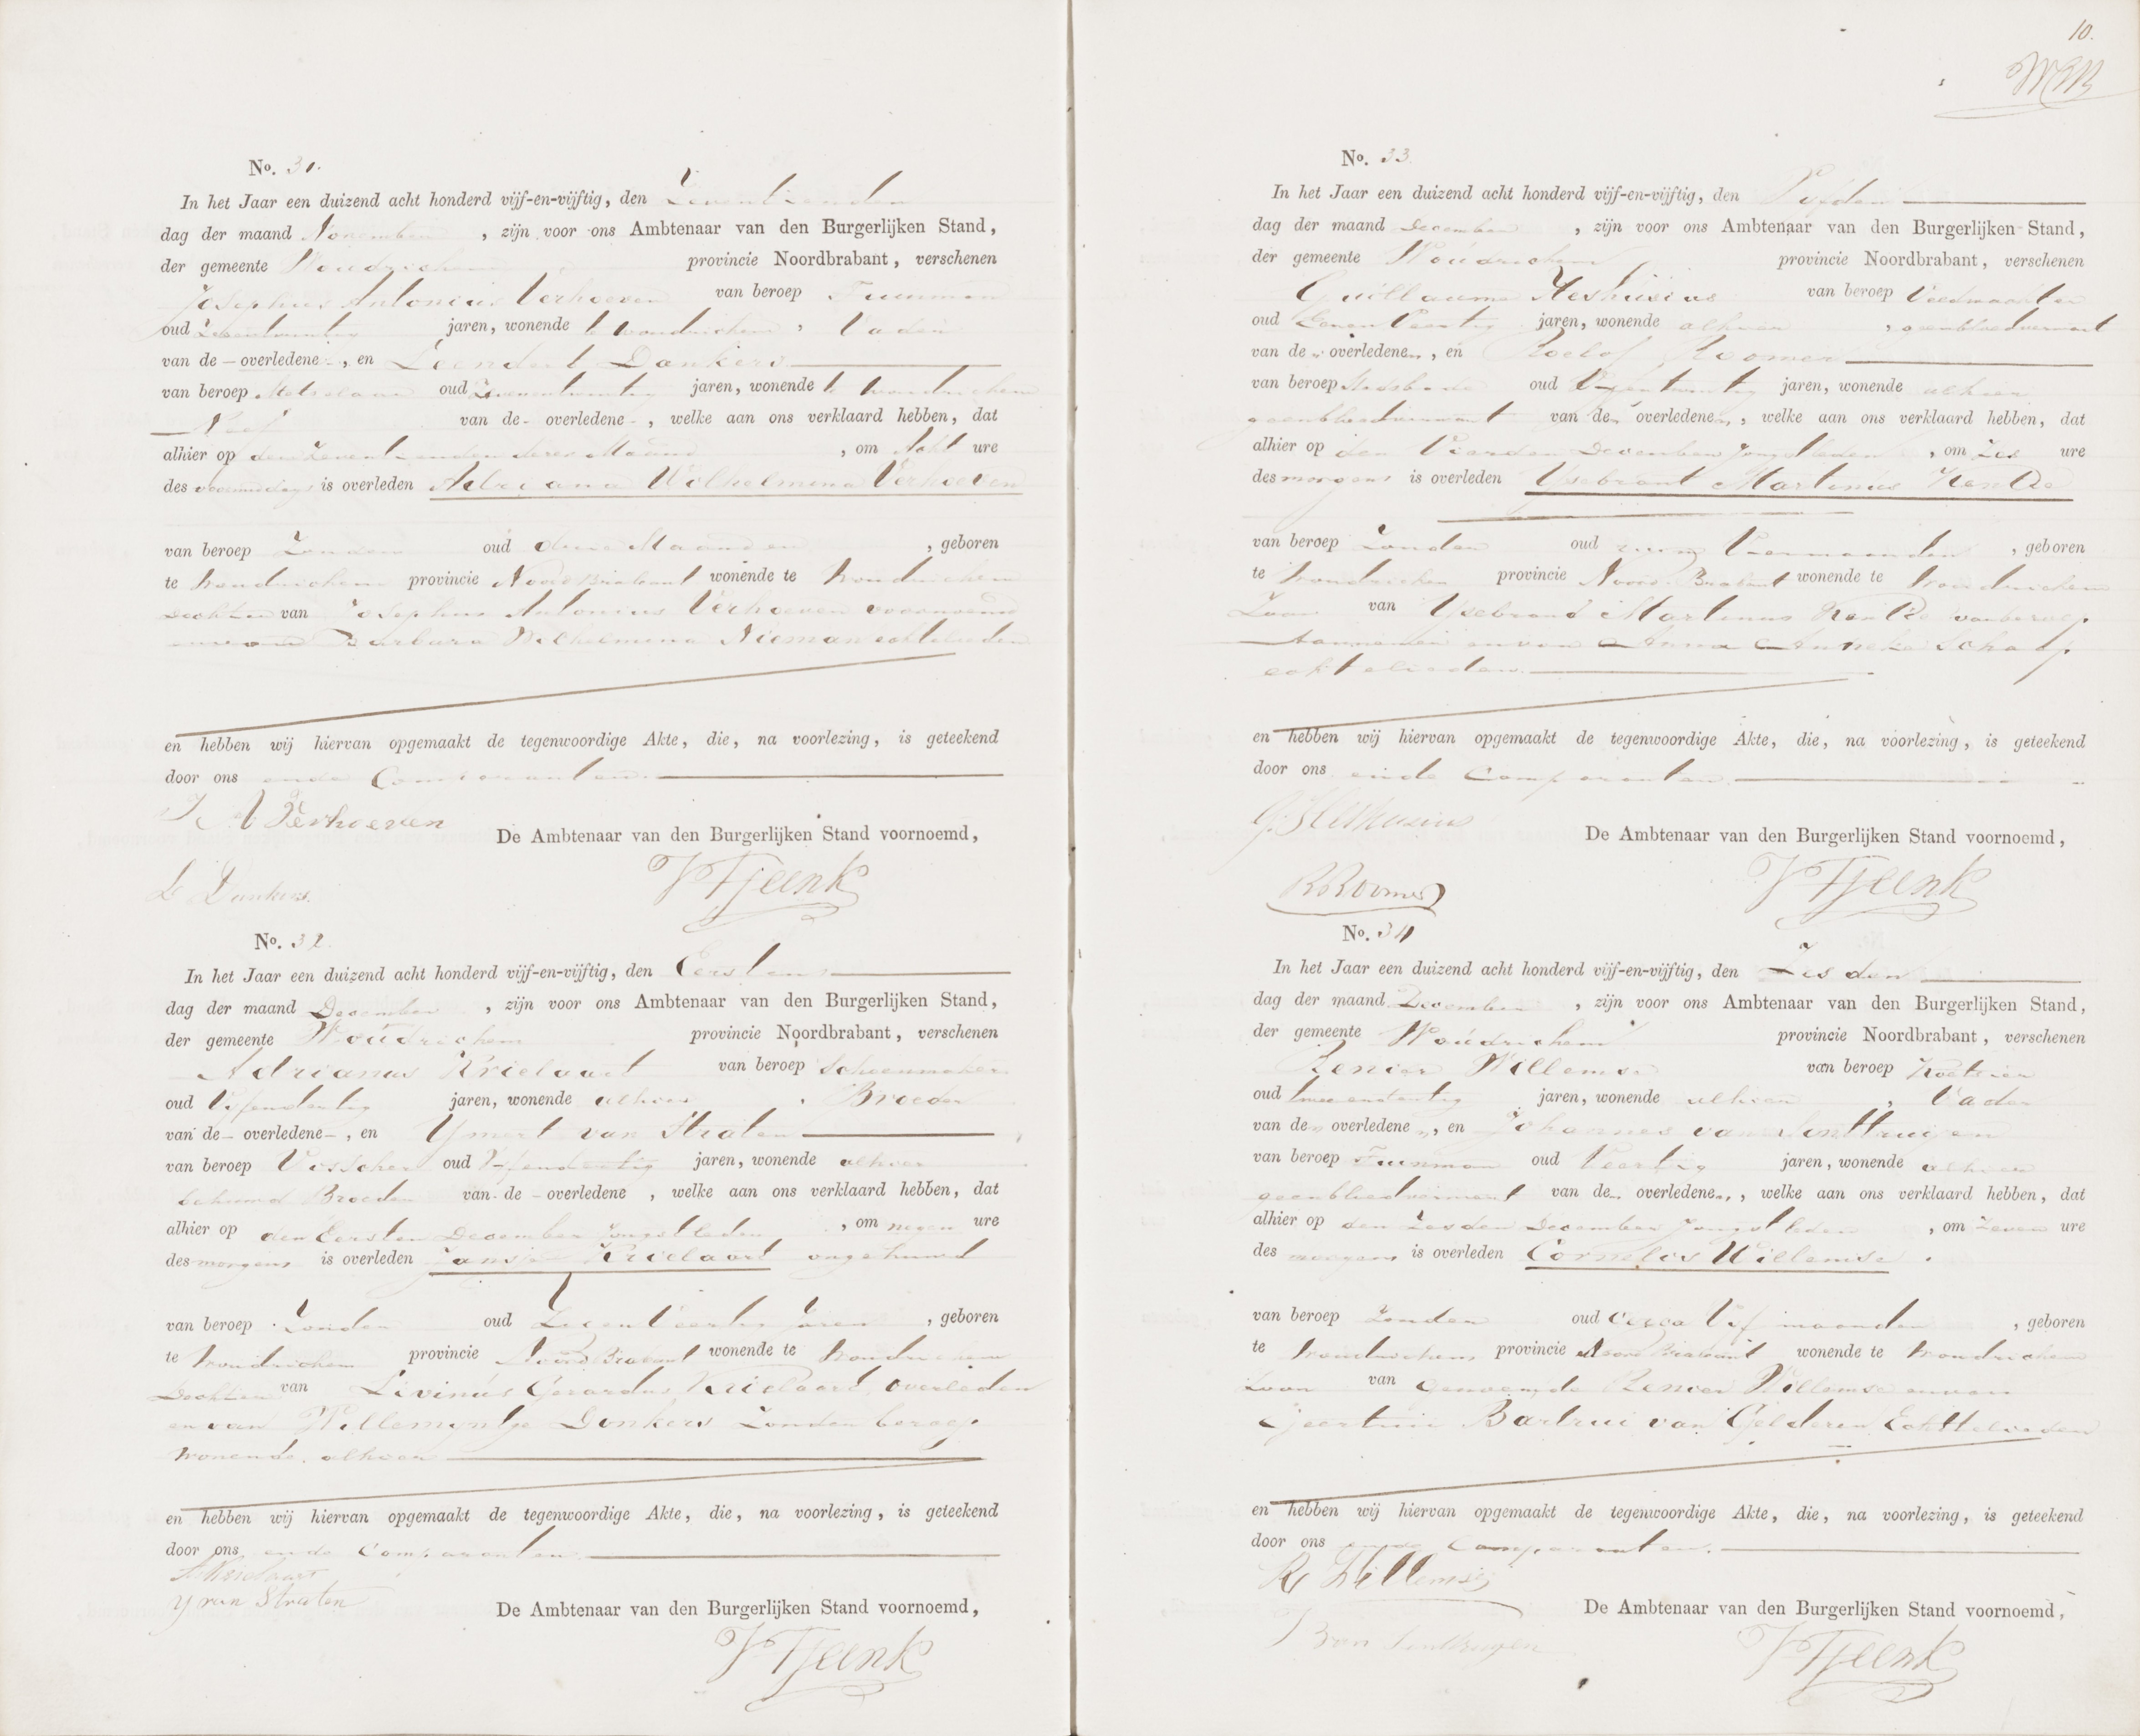 No. 31.
In het Jaar een duizend acht honderd vijf-en-vijftig, den Zeventienden
dag der maand November , zijn voor ons Ambtenaar van den Burgerlijken Stand,
der gemeente Woudrichem provincie Noordbrabant, verschenen
Josephus Antonius Verhoeven van beroep Tuinman
oud Zevenentwintig jaren, wonende te Woudrichem , Vader
van de - overledene -, en Leendert Dankers
van beroep Metselaar oud Zevenentwintig jaren, wonende te Woudrichem
Neef van de - overledene -, welke aan ons verklaard hebben, dat
alhier op den Zeventienden dezer Maand , om Acht ure
des voormiddags is overleden Adriana Wilhelmina Verhoeven
van beroep Zonder oud drie Maanden , geboren
te Woudrichem provincie Noord Brabant wonende te Woudrichem
Dochter van Josephus Antonius Verhoeven voornoemd
en van Barbara Wilhelmina Nieman echtelieden
en hebben wij hiervan opgemaakt de tegenwoordige Akte, die, na voorlezing, is geteekend
door ons en de Comparanten.
J A Verhoeven
De Ambtenaar van den Burgerlijken Stand voornoemd,
L Dankers.
V Tjeenk
No. 32.
In het Jaar een duizend acht honderd vijf-en-vijftig, den Eersten
dag der maand December , zijn voor ons Ambtenaar van den Burgerlijken Stand,
der gemeente Woudrichem provincie Noordbrabant, verschenen
Adrianus Krielaart van beroep Schoenmaker
oud Vijfendertig jaren, wonende alhier , Broeder
van de - overledene -, en Ymert van Straten
van beroep Visscher oud Vijfendertig jaren, wonende alhier
behuwd Broeder van de - overledene , welke aan ons verklaard hebben, dat
alhier op den Eersten December jongstleden , om negen ure
des morgens is overleden Jansje Krielaart ongehuwd
van beroep Zonder oud Jaren , geboren
te Woudrichem provincie Noord Brabant wonende te Woudrichem
Dochter van Livinus Gerardus Krielaard, overleden
en van Willemyntje Donkers Zonder beroep
wonende alhier
en hebben wij hiervan opgemaakt de tegenwoordige Akte, die, na voorlezing, is geteekend
door ons en de Comparanten.
A Krielaart
Y van Straten
De Ambtenaar van den Burgerlijken Stand voornoemd,
V Tjeenk
10.
No. 33.
In het Jaar een duizend acht honderd vijf-en-vijftig, den Vijfden
dag der maand December , zijn voor ons Ambtenaar van den Burgerlijken Stand,
der gemeente Woudrichem provincie Noordbrabant, verschenen
Guillaume Heshusius van beroep Veldwachter
oud jaren, wonende alhier , geenbloedverwant
van de " overledene ", en Roelof Roomer
van beroep Stadsbode oud Vijfentwintig jaren, wonende alhier
geenbloedverwant van de " overledene ", welke aan ons verklaard hebben, dat
alhier op den Vierden December jongstleden , om Zes ure
des morgens is overleden Ysebrant Martinus Kentie
van beroep Zonder oud ruim Viermaanden , geboren
te Woudrichem provincie Noord-Brabant wonende te Woudrichem
Zoon van Ysebrand Martinus Kentie van beroep
Aannemer en van Anna Anneke Schaap
echtelieden.
en hebben wij hiervan opgemaakt de tegenwoordige Akte, die, na voorlezing, is geteekend
door ons en de Comparanten.
G. Heshusius
De Ambtenaar van den Burgerlijken Stand voornoemd,
R Roomer
V Tjeenk
No. 34
In het Jaar een duizend acht honderd vijf-en-vijftig, den Zesden
dag der maand December , zijn voor ons Ambtenaar van den Burgerlijken Stand,
der gemeente Woudrichem provincie Noordbrabant, verschenen
Renier Willemse van beroep
oud twee endertig jaren, wonende alhier , Vader
van de " overledene ", en Johannes van
van beroep Tuinman oud Veertig jaren, wonende alhier
geenbloedverwant van de " overledene ", welke aan ons verklaard hebben, dat
alhier op den Zesden December jongstleden , om Zeven ure
des morgens is overleden Cornelis Willemse .
van beroep Zonder oud circa Vijf maanden , geboren
te Woudrichem, provincie Noord Brabant wonende te Woudrichem
Zoon van genoemde Renier Willemse en van
Geertrui Bartrui van Gelderen Echtelieden
en hebben wij hiervan opgemaakt de tegenwoordige Akte, die, na voorlezing, is geteekend
door ons en de Comparanten.
R Willemse
De Ambtenaar van den Burgerlijken Stand voornoemd,
V Tjeenk